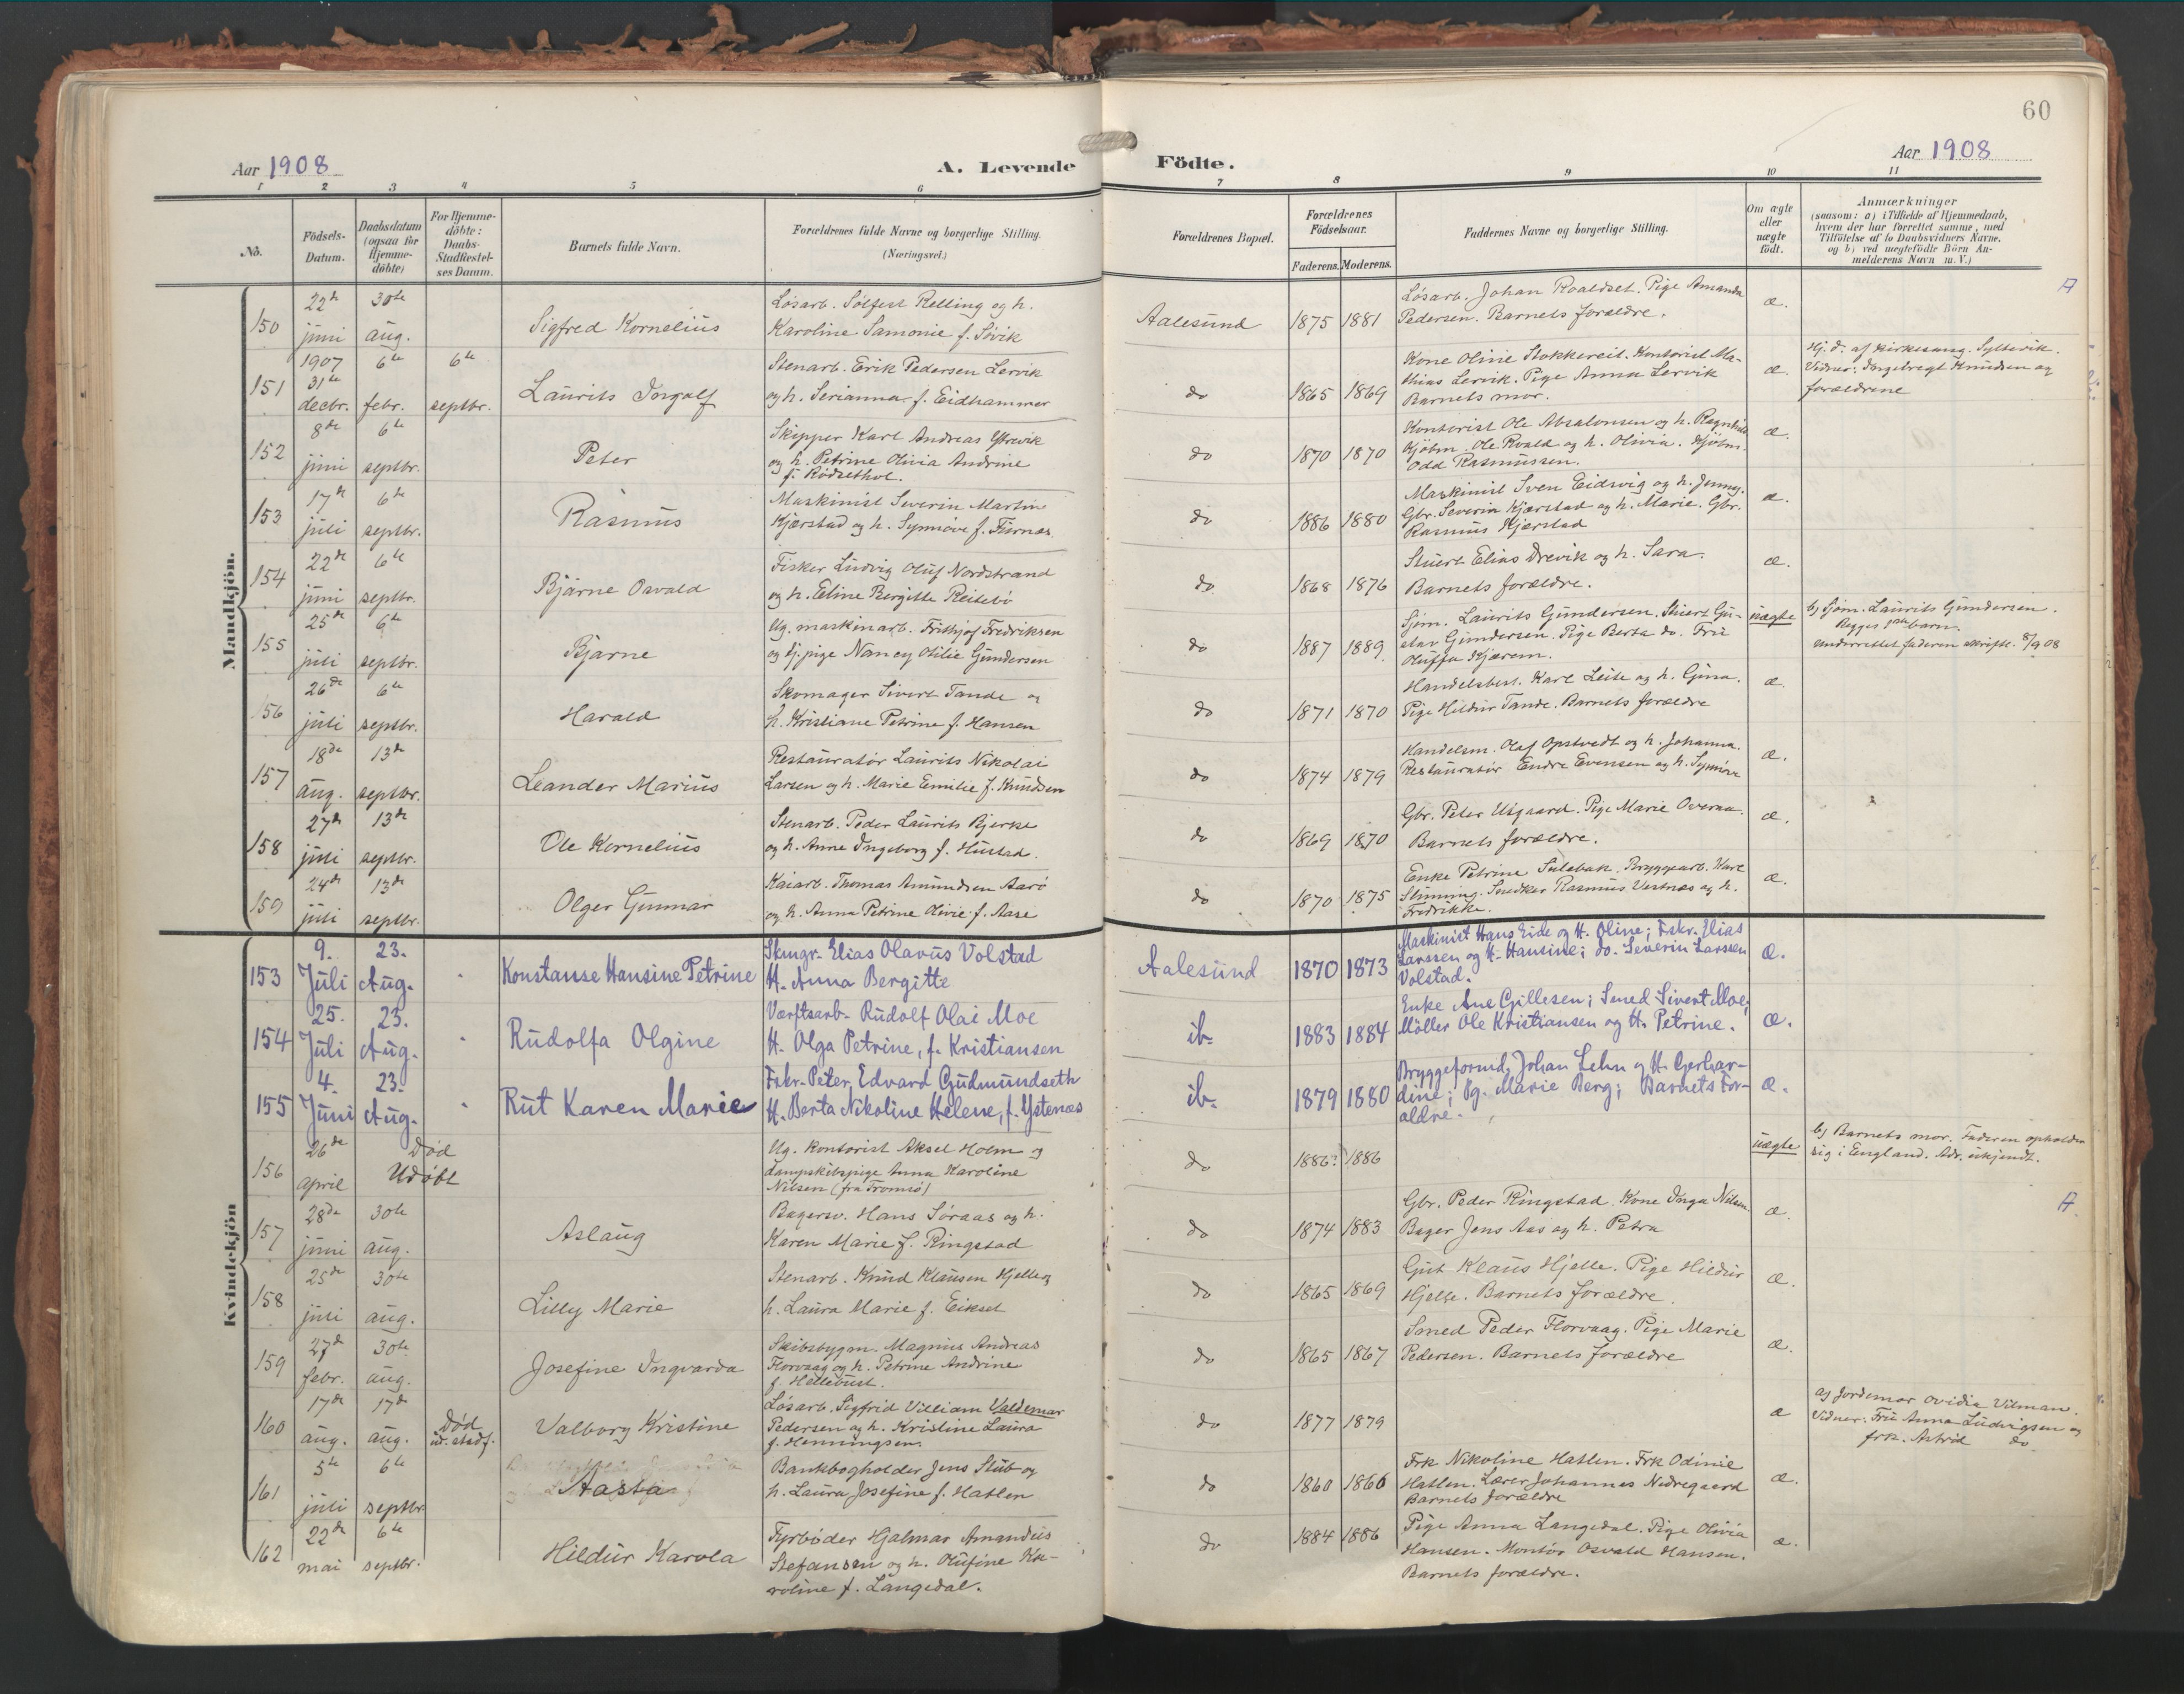 60
Aar 1908
A. Levende
Födte.
Aar 1908
1 2 3 4 5 6 7 8 9 10 11
No.
Födsels-
Datum.
Daabsdatum
(ogsaa for
Hjemme-
döbte)
For Hjemme-
döbte:
Daabs-
Stadfæstel-
ses Datum.
Barnets fulde Navn.
Forældrenes fulde Navne og borgerlige Stilling.
(Næringsvei.)
Forældrenes Bopæl.
Forældrenes
Födselsaar.
Faderens. Moderens.
Faddernes Navne og borgerlige Stilling.
Om ægte
eller
uægte
födt.
Anmærkninger
(saasom: a) i Tilfælde af Hjemmedaab,
hvem der har forrettet samme, med
Tilföielse af to Daabsvidners Navne,
og b) ved uægtefödte Börn An-
melderens Navn m. V.)
Mandkjön.
150 22de juni 30te aug. Sigfred Kornelius
Løsarb. Sölfest Relling og h.
Karoline Samonie f. Søvik
Aalesund 1875 1881
Løsarb. Johan Roaldset. Pige Amanda
Pedersen. Barnets forældre.
æ. A
151 1907 31te decbr. 6te febr. 6te septbr. Laurits Ingolf
Stenarb. Erik Pedersen Lervik
og h. Serianna f. Eidhammer
do 1865 1869
Kone Oline Stokkereit. Kontorist Ma-
thias Lervik. Pige Anna Lervik
Barnets mor.
æ.
Hj. d. af kirkesang. Syltevik.
Vidner: Ingebregt Knudsen og
forældrene
152 8de juni 6te septbr. Peter
Skipper Karl Andreas Ytrevik
og h. Petrine Olivia Andrine
f. Rödsethol.
do 1870 1870
Kontorist Ole Absalonsen og h. Ragnhild
Kjöbm. Ole Roald og h. Olivia. Kjöbm.
Odd Rasmussen.
æ.
153 17de juli 6te septbr. Rasmus
Maskinist Severin Martin
Kjærstad og h. Synnöve f. Furnæs
do 1886 1880
Maskinist Sven Eidsvig og h. Jenny.
Gbr. Severin Kjærstad og h. Marie. Gbr.
Rasmus Kjærstad
æ.
154 22de juni 6te septbr. Bjarne Osvald
Fisker Ludvig Oluf Nordstrand
og h. Eline Bergitte Reitebö
do. 1868 1876
Stuert Elias Drevik og h. Sara.
Barnets forældre.
æ.
155 25de juli 6te septbr. Bjarne
Ug. maskinarb. Frithjof Fredriksen
og tj.pige Nancy Otilie Gundersen
do 1887 1889
Sjøm. Laurits Gundersen. Stuert Gu-
stav Gundersen. Pige Berta do. Fru
Oluffa Kjærem.
uægte
b) Sjøm. Laurits Gundersen.
Begges 1ste barn.
Underrettet faderen skriftl. 8/9 08
156 26de juli 6te septbr. Harald
Skomager Sivert Tande og
h. Kristiane Petrine f. Hansen
do 1871 1870
Handelsbest. Karl Leite og h. Gina.
Pige Hildur Tande. Barnets forældre
æ.
157 18de aug. 13de septbr. Leander Marius
Restauratør Laurits Nikolai
Larsen og h. Marie Emilie f. Knudsen
do 1874 1879
Handelsm. Olaf Opstvedt og h. Johanna.
Restauratör Endre Evensen og h. Synnöve
æ.
158 27de juli 13de septbr. Ole Kornelius
Stenarb. Peder Laurits Bjerke
og h. Anne Ingeborg f. Hustad.
do 1869 1870
Gbr. Peter Usgaard. Pige Marie Overaa.
Barnets forældre.
æ.
159 24de juli 13de septbr. Olger Gunnar
Kaiarb. Thomas Amundsen Aarö
og h. Anna Petrine Olivie f. Aase
do 1870 1875
Enke Petrine Sulebak. Bryggearb. Karl
Slinning. Snedker Rasmus Vestnæs og h.
Fredrikke.
æ.
Kvindekjön
153 9. Juli 23. Aug. Konstanse Hansine Petrine
Skmgr. Elias Olavus Volstad
H. Anna Bergitte
Aalesund 1870 1873
Maskinist Hans Eide og H. Oline; Fskr. Elias
Larssen og H. Hansine; do. Severin Larssen
Volstad.
Æ.
154 25. Juli 23. Aug. Rudolfa Olgine
Værftsarb. Rudolf Olai Moe
H. Olga Petrine, f. Kristiansen
ib. 1883 1884
Enke Ane Gillesen; Smed Sivert Moe;
Möller Ole Kristiansen og H. Petrine.
Æ.
155 4. Juni 23. Aug. Rut Karen Marie
Fskr. Peter Edvard Gudmundseth
H. Berta Nikoline Helene, f. Ystenæs
ib. 1879 1880
Bryggeformd. Johan Lehn og H. Gerhar-
dine; Pg. Marie Berg; Barnets For-
ældre.
Æ.
156 26de april Død Udöbt
Ug. Kontorist Aksel Holm og
dampskibspige Anna Karoline
Nilsen (fra Tromsö)
do 1886? 1886
uægte
b) Barnets mor. Faderen opholder
sig i England. Adr. ukjendt.
157 28de juni 30te aug. Aslaug
Bagersv. Hans Søraas og h.
Karen Marie f. Ringstad
do 1874 1883
Gbr. Peder Ringstad. Kone Inga Nilsen
Bager Jens Aas og h. Petra
æ. A.
158 25de juli 30te aug. Lilly Marie
Stenarb. Knud Klausen Hjelle og
h. Laura Marie f. Eikset
do 1865 1869
Gut Klaus Hjelle. Pige Hildur
Hjelle. Barnets forældre.
æ.
159 27de febr. 30te aug. Josefine Ingvarda
Skibsbygm. Magnus Andreas
Florvaag og h. Petrine Andrine
f. Hellebust.
do 1865 1867
Smed Peder Florvaag. Pige Marie
Pedersen. Barnets forældre
æ.
160 17de aug. 17de aug. Död u. stadf. Valborg Kristine
Løsarb. Sigfrid Villiam Valdemar
Pedersen og h. Kristine Laura
f. Henningsen.
do 1877 1879
æ
a) Jordemor Ovidia Vilman.
Vidner: Fru Anna Ludvigsen og
frk. Astrid do.
161 5te juli 6te septbr. Aasta
Bankbogholder Jens Stub og
h. Laura Josefine f. Hatlen
do 1860 1866
Frk Nikoline Hatlen. Frk Odinie
Hatlen. Lærer Johannes Nedregaard
Barnets forældre
æ.
162 22de mai 6te septbr. Hildur Karola
Fyrbøder Hjalmar Amandus
Stefansen og h. Olufine Ka-
roline f. Langedal.
do 1884 1886
Pige Anna Langedal. Pige Olivia
Hansen. Montör Osvald Hansen.
Barnets forældre.
æ.